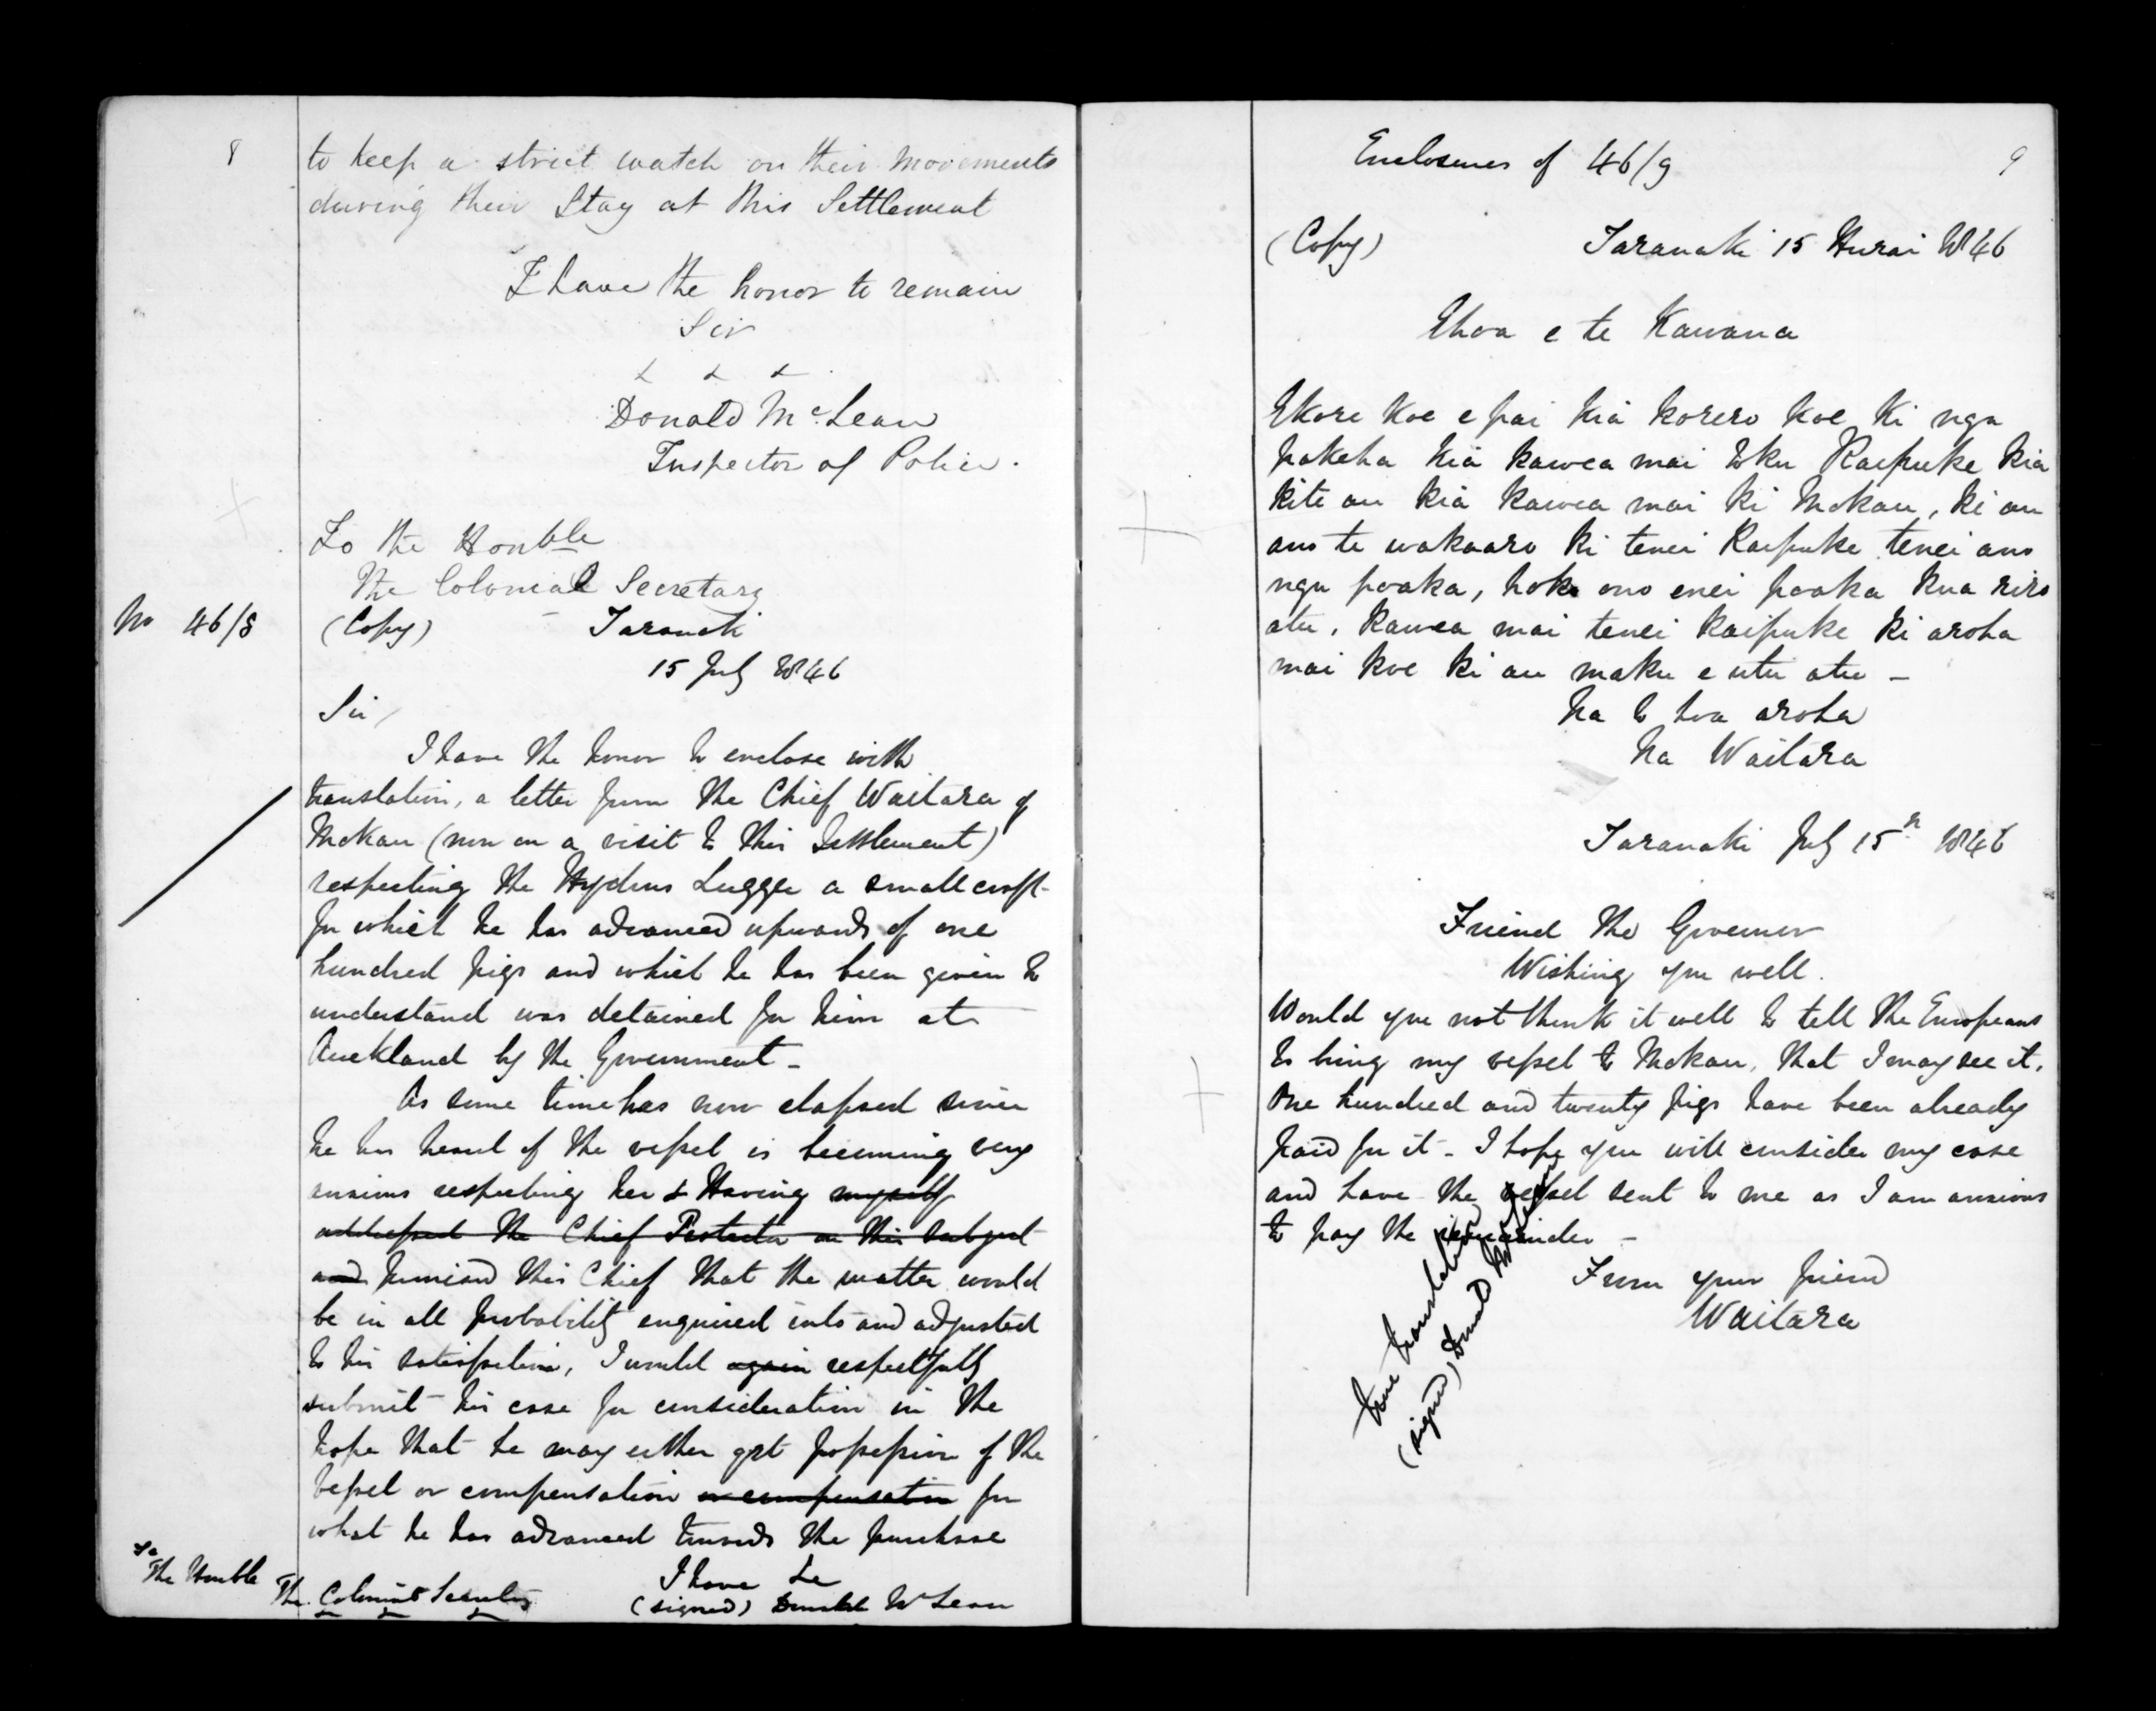 8
to keep a strict watch on their movements
during their Stay at this Settlement
I have the honor to remain
Sir
Donald McLean
Inspector of Police.
To the Honble
The Colonial Secretary
No 46/8
(Copy) Taranaki
15 July 1846
Sir
I have the honor to enclose with
translation, a letter from the Chief Waitara of
Mokau (now on a visit to this Settlement)
respecting the Hydrus Lugger a small craft
for which he has advanced upwards of one
hundred pigs and which he has been given to
understand was detained for him at
Auckland by the Government -
As some time has now elapsed since
he has heard of the vessel is becoming very
anxious respecting her & Having myself
addressed the Chief Protector on this subject
and promised this Chief that the matter would
be in all probability enquired into and adjusted
to his satisfaction, I would again respectfully
submit his case for consideration in the
hope that he may either get possession of the
vessel or compensation or compensation for
what he has advanced towards the purchase
I have &c
(signed) Donald McLean
To
The Honble
The Colonial Secretary
9
Enclosures of 46/9
(Copy) Taranaki 15 Hurai 1846
Ehoa e te Kawana
Ekore koe e pai kia korero koe ki nga
pakeha kia kawea mai toku Kaipuke kia
kite au kia kawea mai ki Mokau, ki au
ano te wakaaro ki tenei Kaipuke tenei ano
nga poaka, hoki ono enei poaka kua riro
atu, kawea mai tenei kaipuke ki aroha
mai koe ki au maku e utu atu -
Na to hoa aroha
Na Waitara
Taranaki July 15th 1846
Friend the Governor
Wishing you well.
Would you not think it well to tell the Europeans
to bring my vessel to Mokau, that I may see it.
One hundred and twenty pigs have been already
paid for it - I hope you will consider my case
and have the vessel sent to me as I am anxious
to pay the remainder -
From your friend
Waitara
true translation
(signed) Donald McLean